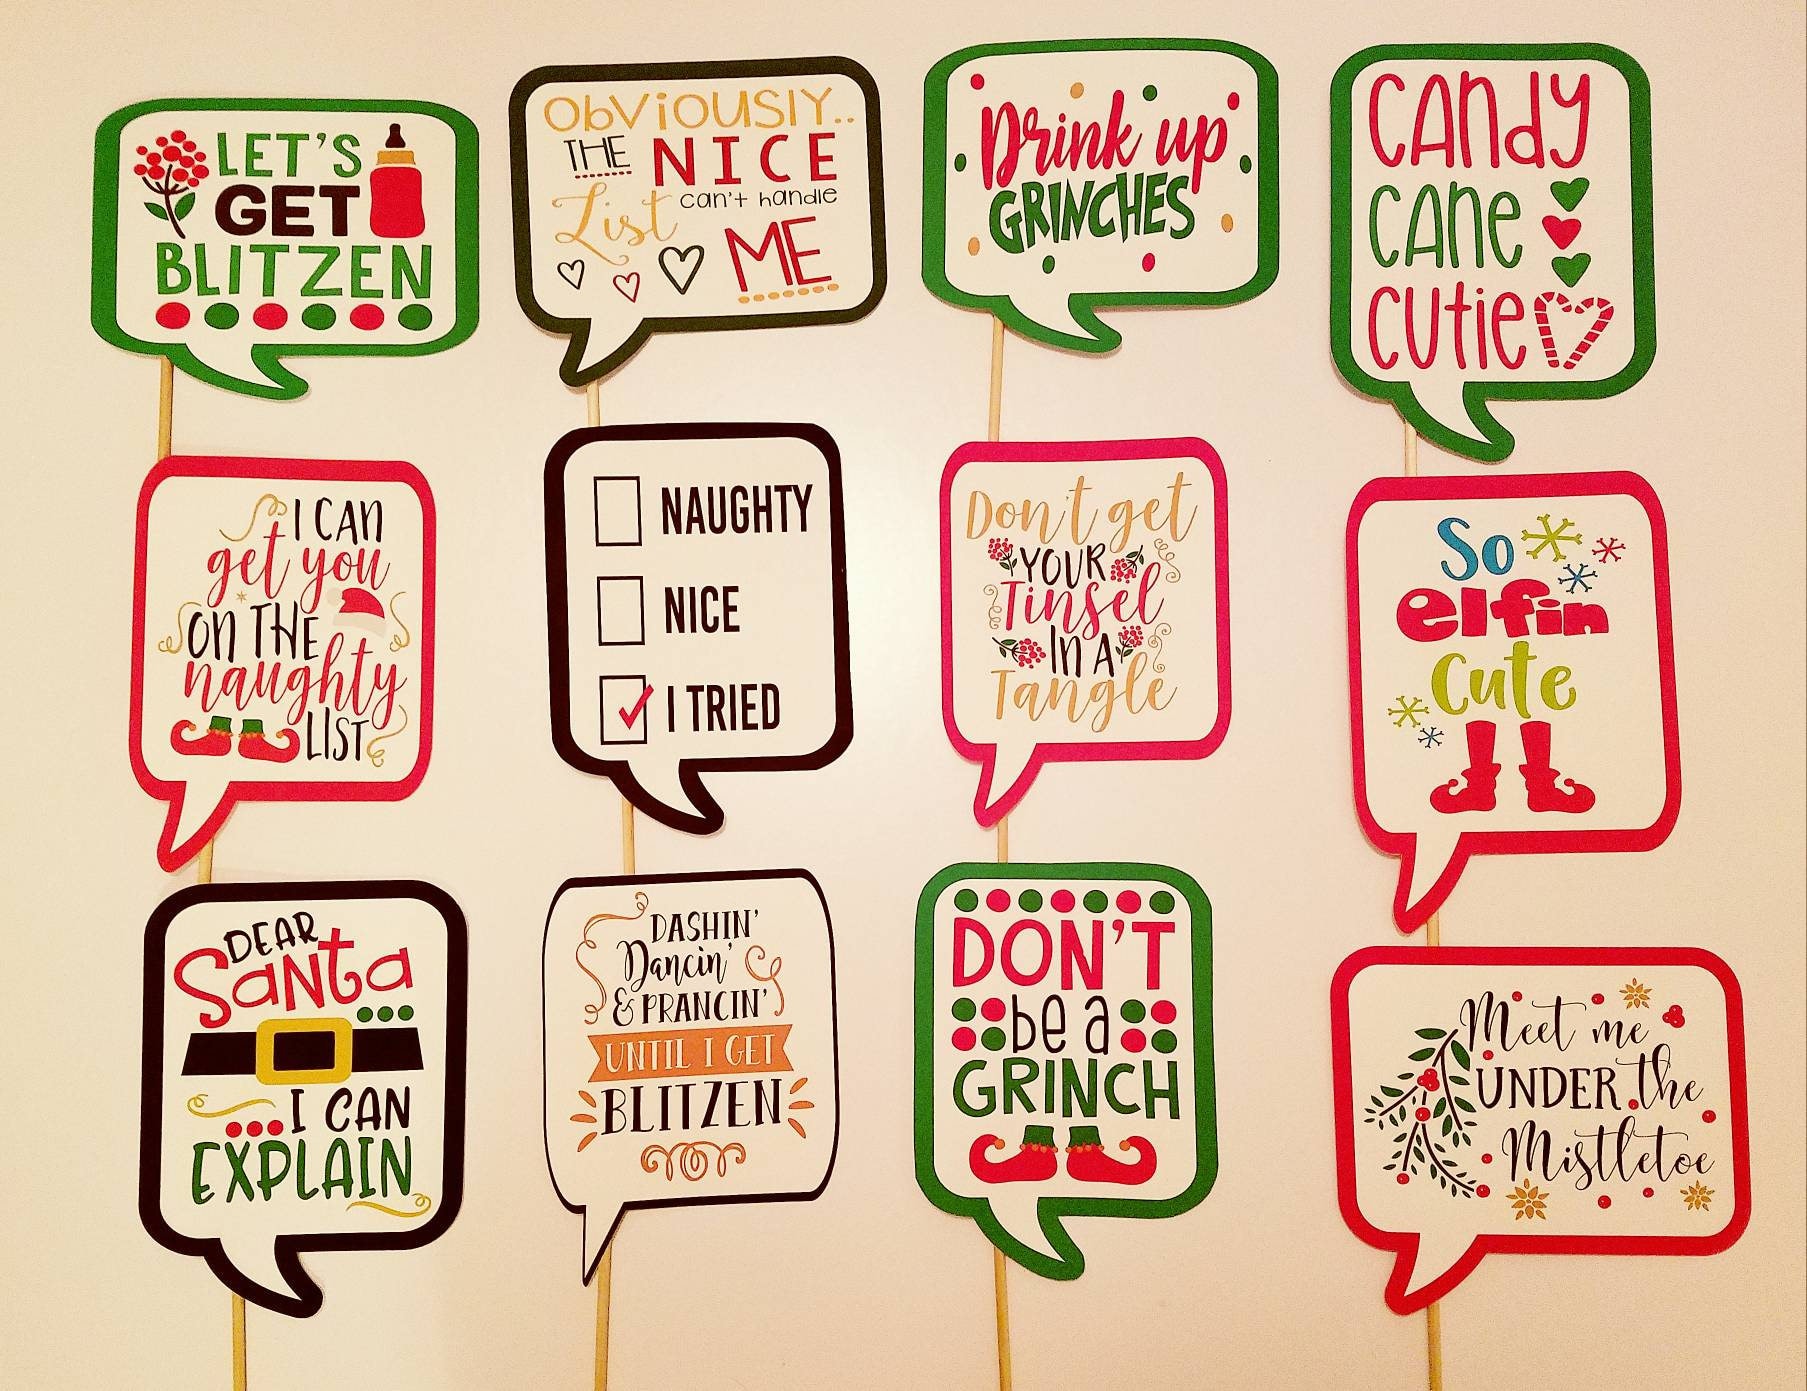 LET'S
GET
BLITZEN
ObViOUSlY..
THE NICE
List can't handle
ME
Drink up
GRINCHES
CANdy
CANe
CUtie
I CAN
get you
ON THE
naughty
LIST
NAUGHTY
NICE
I TRIED
Don't get
YOUR
Tinsel
IN A
Tangle
So
elfin
Cute
DEAR
SaNta
I CAN
EXPLAIN
DASHIN'
Dancin'
& PRANCIN'
UNTIL I GET
BLITZEN
DON'T
be a
GRINCH
Meet me
UNDER the
Mistletoe